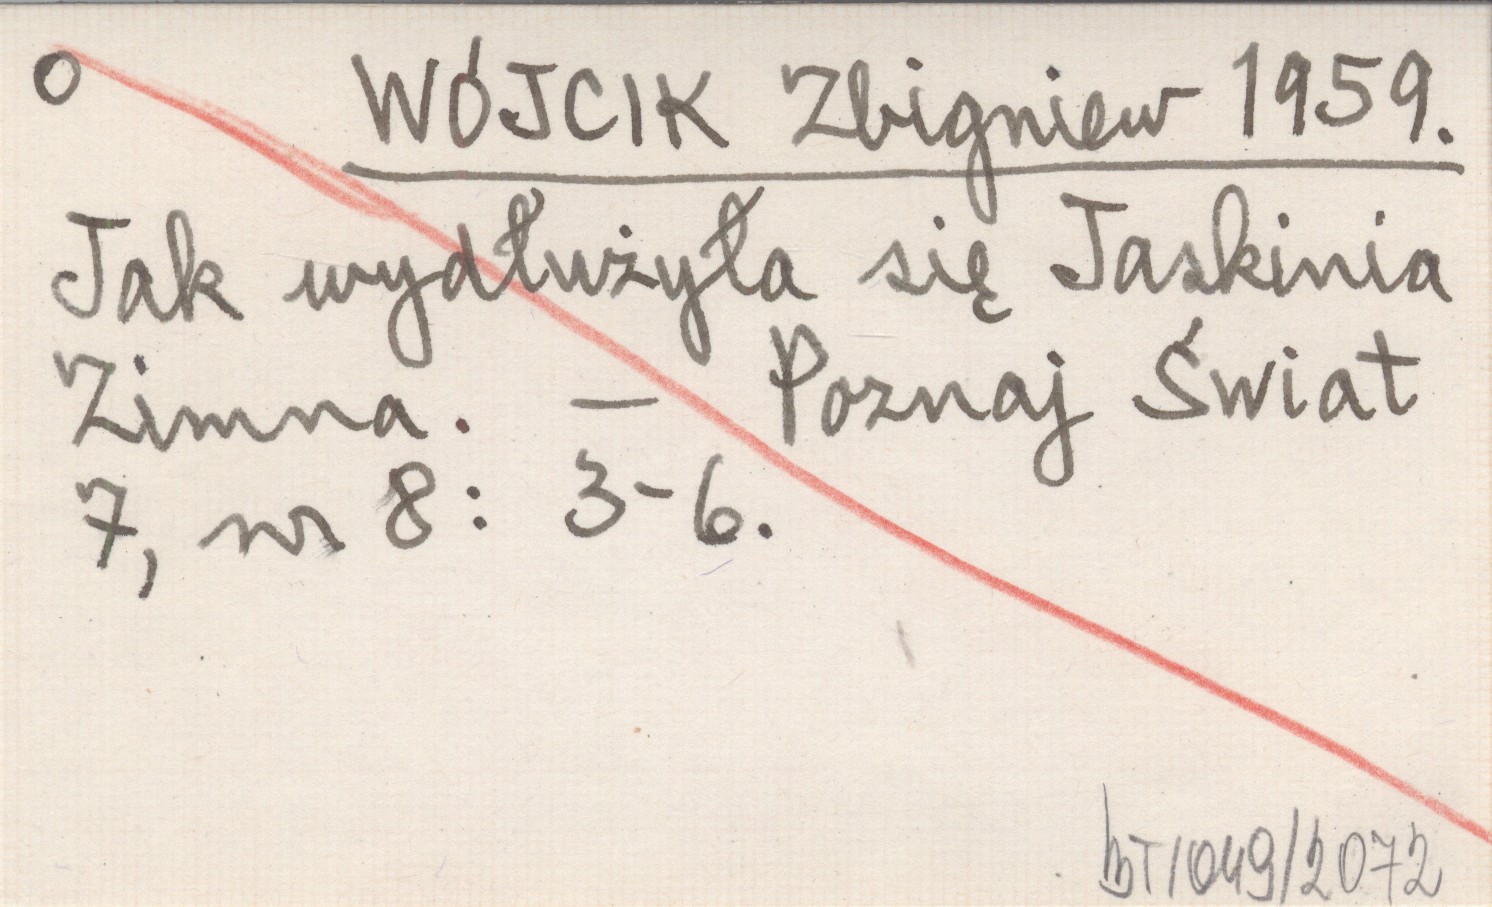 O WÓJCIK Zbigniew 1959.
Jak wydłużyła się Jaskinia
Zimna. — Poznaj Świat
7, nr 8: 3-6.
BT/049/2072